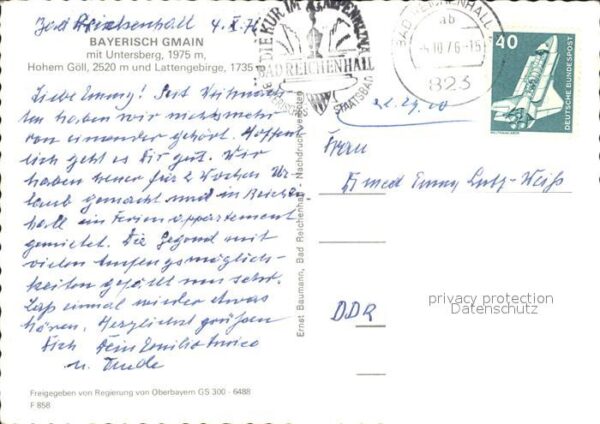 Bad Reichenhall 4. X. 76
BAYERISCH GMAIN
mit Untersberg, 1975 m,
Hohem Göll, 2520 m und Lattengebirge, 1735 m
Liebe Emmy! Seit Weihnach-
ten haben wir nichts mehr
von einander gehört. Hoffent-
lich geht es Dir gut. Wir
haben heuer für 2 Wochen Ur-
laub gemacht und in Reichen-
hall ein Ferienappartement
gemietet. Die Gegend mit
vielen
keiten gefällt uns sehr.
Laß einmal wieder etwas
hören. Herzlichst grüßen
Dich Dein
u. Trude
Freigegeben von Regierung von Oberbayern GS 300 - 6488
F 858
Ernst Baumann, Bad Reichenhall - Nachdruck verboten
DIE KUR IM
BAD REICHENHALL
STAATSBAD
BAD REICHENHALL
ab
-5.10.76-15
823
40
DEUTSCHE BUNDESPOST
Frau
Dr med Emmy Lutz-Weiß
DDR
privacy protection
Datenschutz